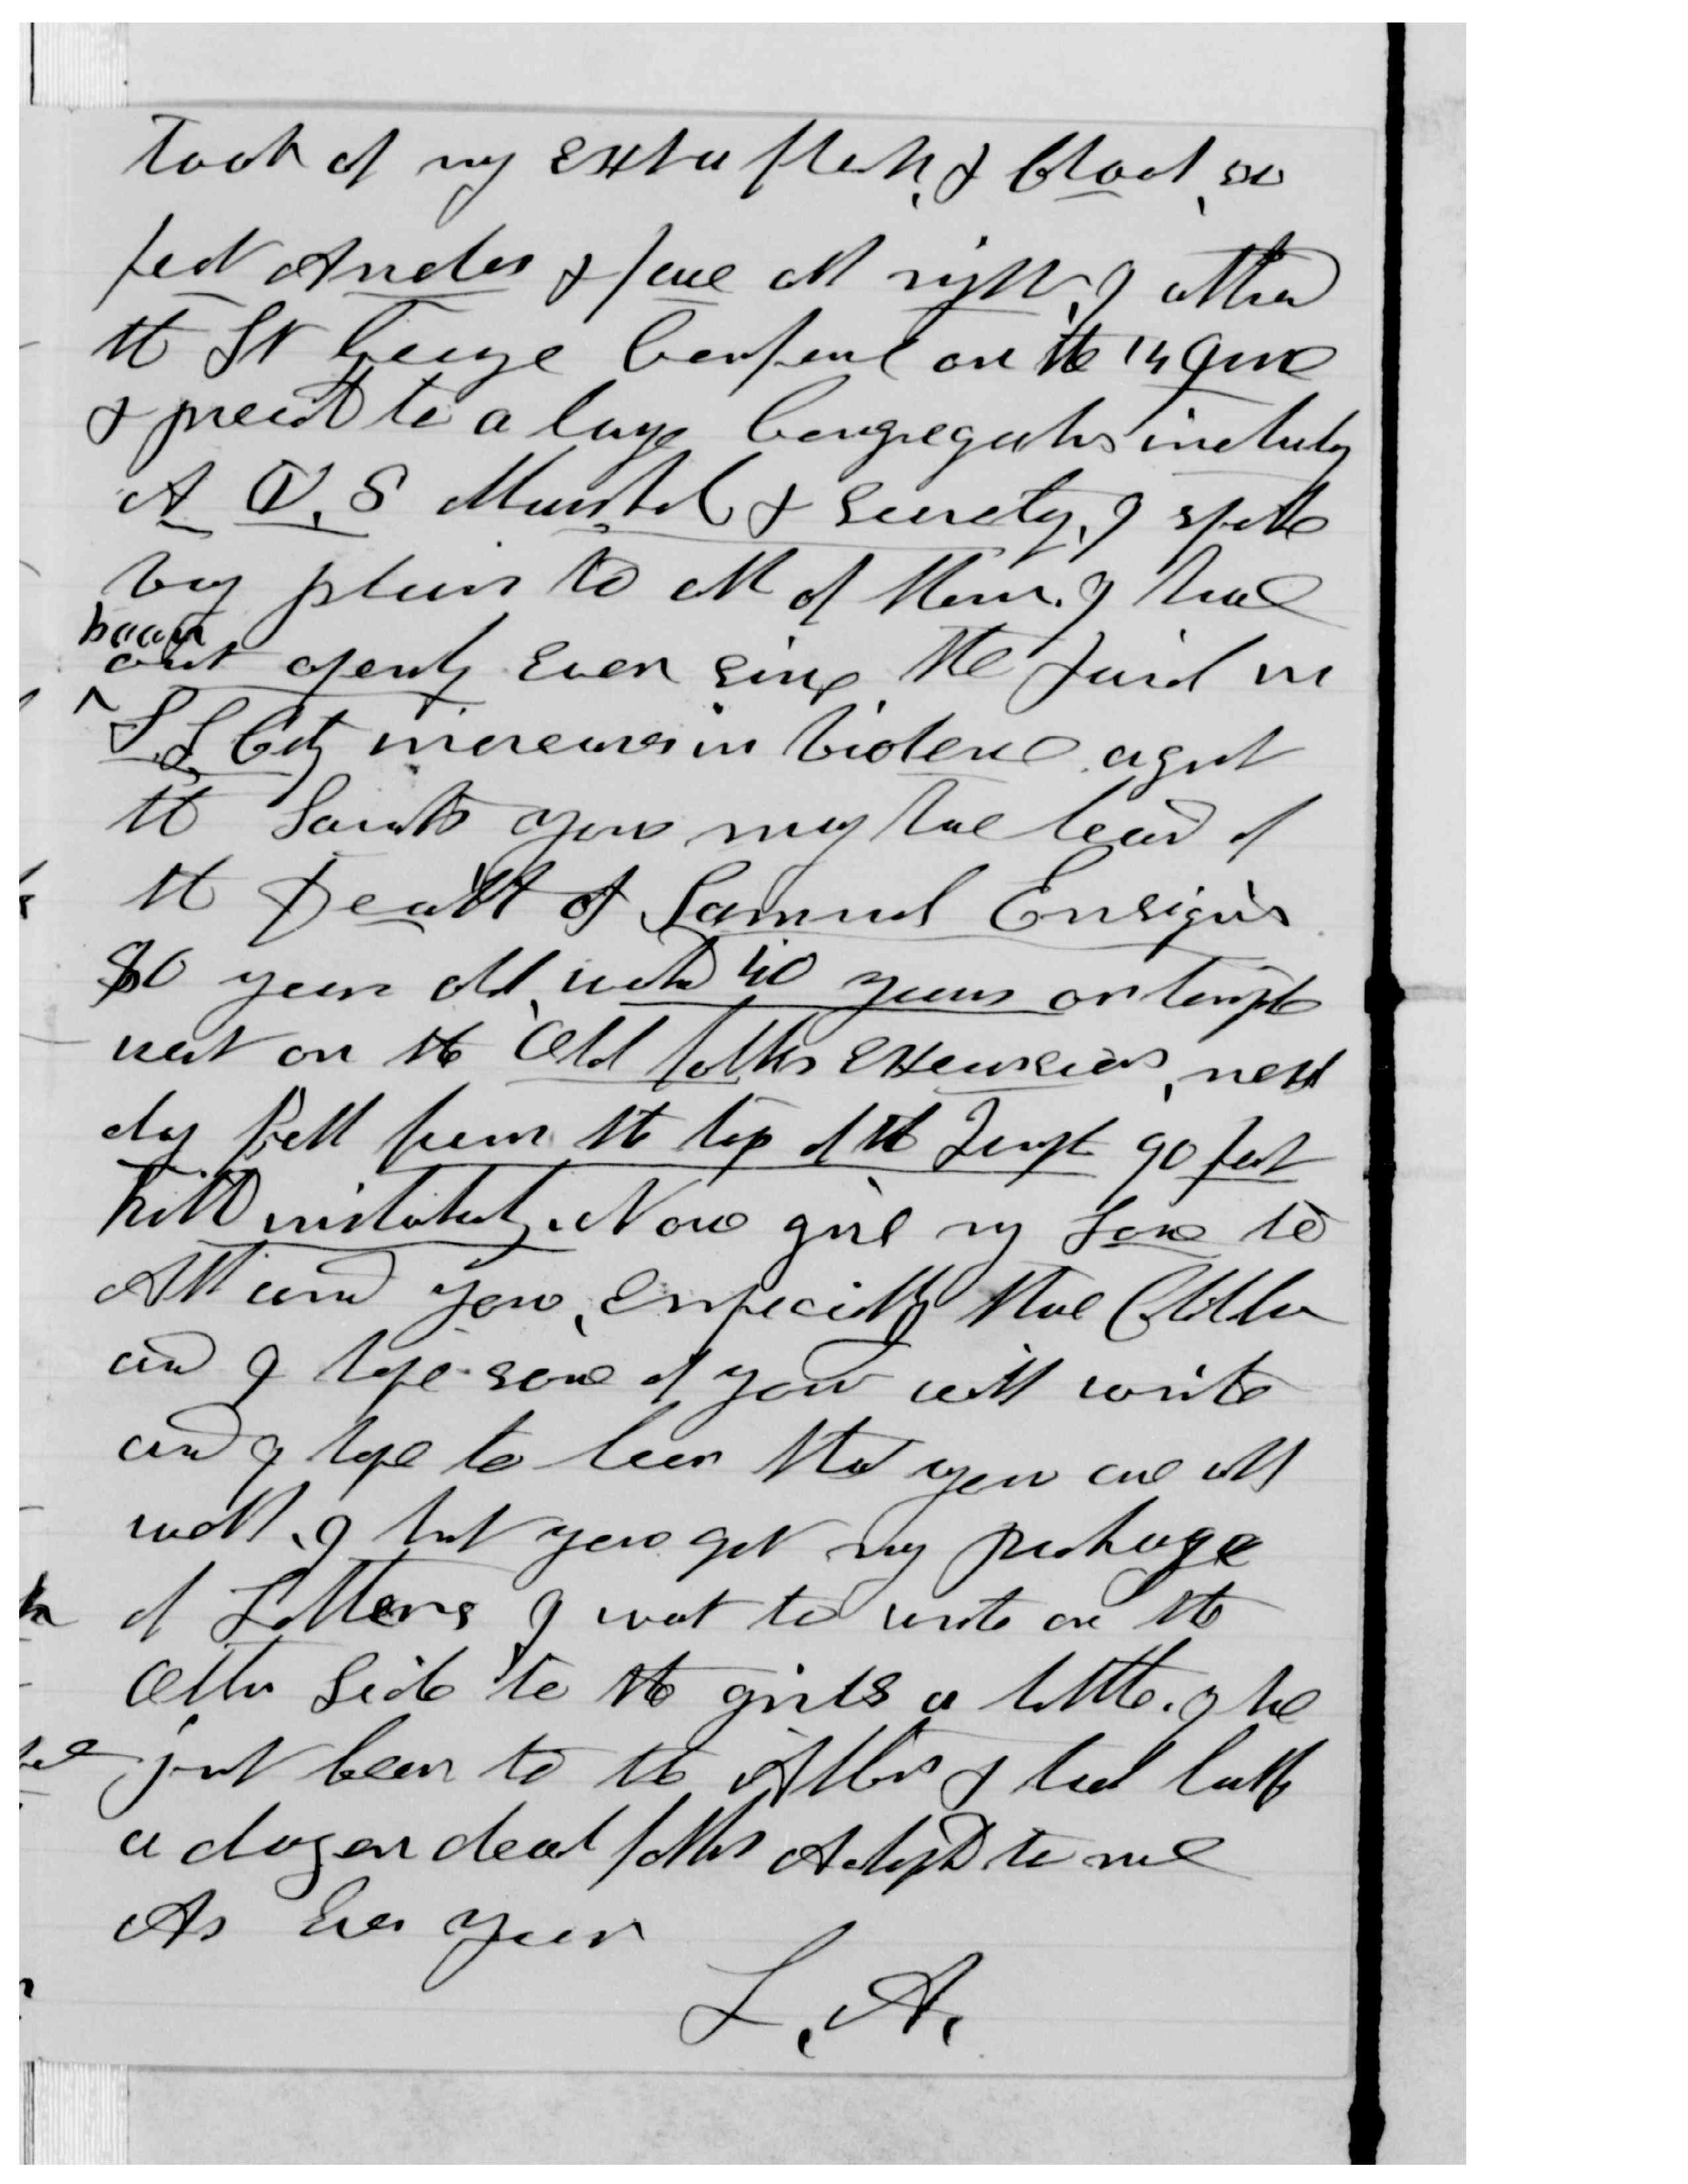 Took of my Extra flesh, & blood, so
feet Ancles & face all right, I attend
the St George Conferenc on the 14 June
& preachd to a large Congregatis includg
A U.S Marshal & Secrety, I spoke
vey plain to all of them. I have
been
out openly Ever since the Judd in
S.L City increases in violence agnst
the Saints you may have heard of
the Death of Samuel Ensign
80 years old, workd 40 years on templ
went on the Old folks Excursion, next
day fell from the top of the Templ 90 feet
killd instantly. Now give my Love to
All arond you, Especially the Childn
and I hope some of you will write
and I hope to hear that you are all
well. I trust you got my package
of Letters I want to write on the
other side to the girls a little. I have
just been to the Alter & had half
a dozen dead folks Adoptd to me
As Ever Your
L. A.